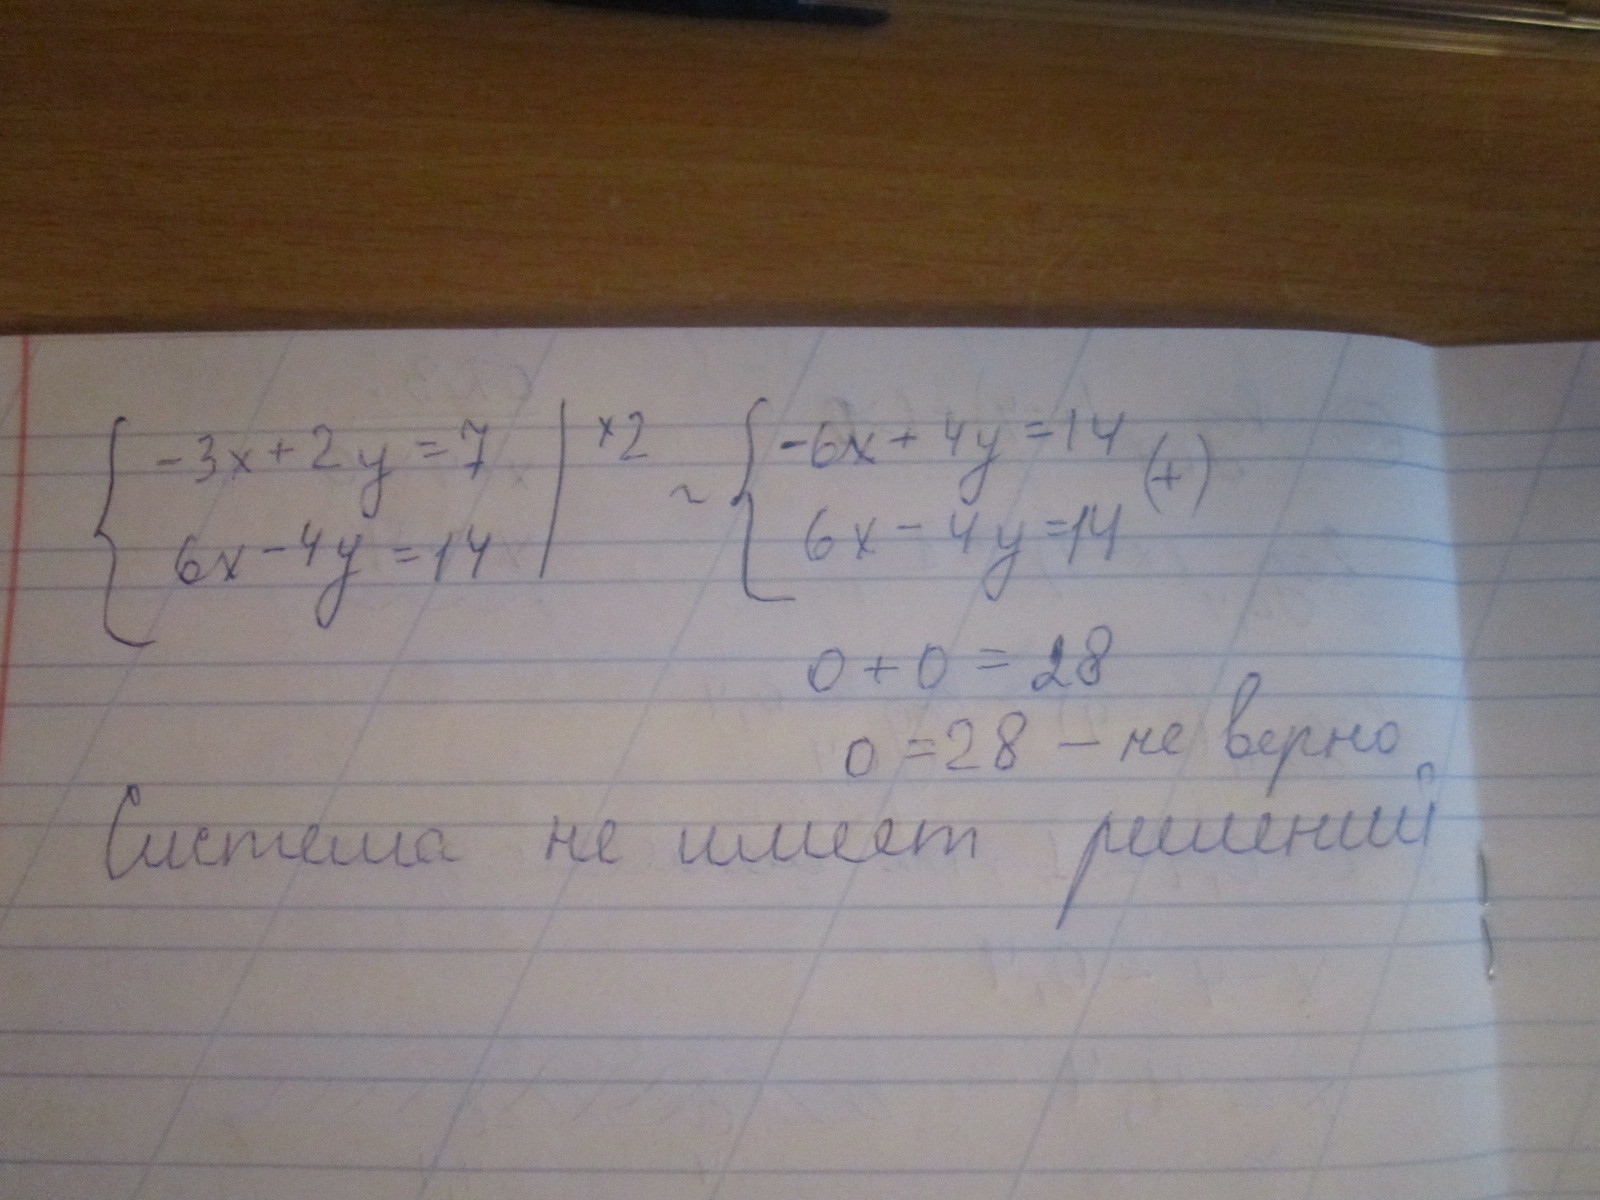 { -3x + 2y = 7 | ×2 ~ { -6x + 4y = 14 (+)
6x - 4y = 14 6x - 4y = 14
0 + 0 = 28
0 = 28 - не верно
Система не имеет решений